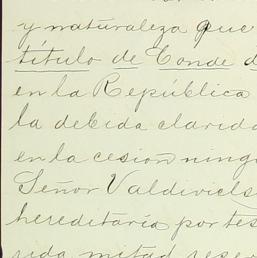 y naturaleza que
título de Conde d
en la República
la debida clarida
en la cesion ning
Señor Valdiviels
hereditaria por tes
mitad reser